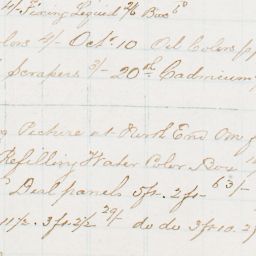 4/- Fixing Liquid 2/6 Box 6d
lors 4/- Oct. 10 Oil Colors
Scrapers 3/- 20th Cadmium
Picture at North End
Refilling Water Color Box
Deal panels 5ft. 2ft- 63/-
11 1/2. 3ft-2 1/2 29/- do do 3ft 10. 2